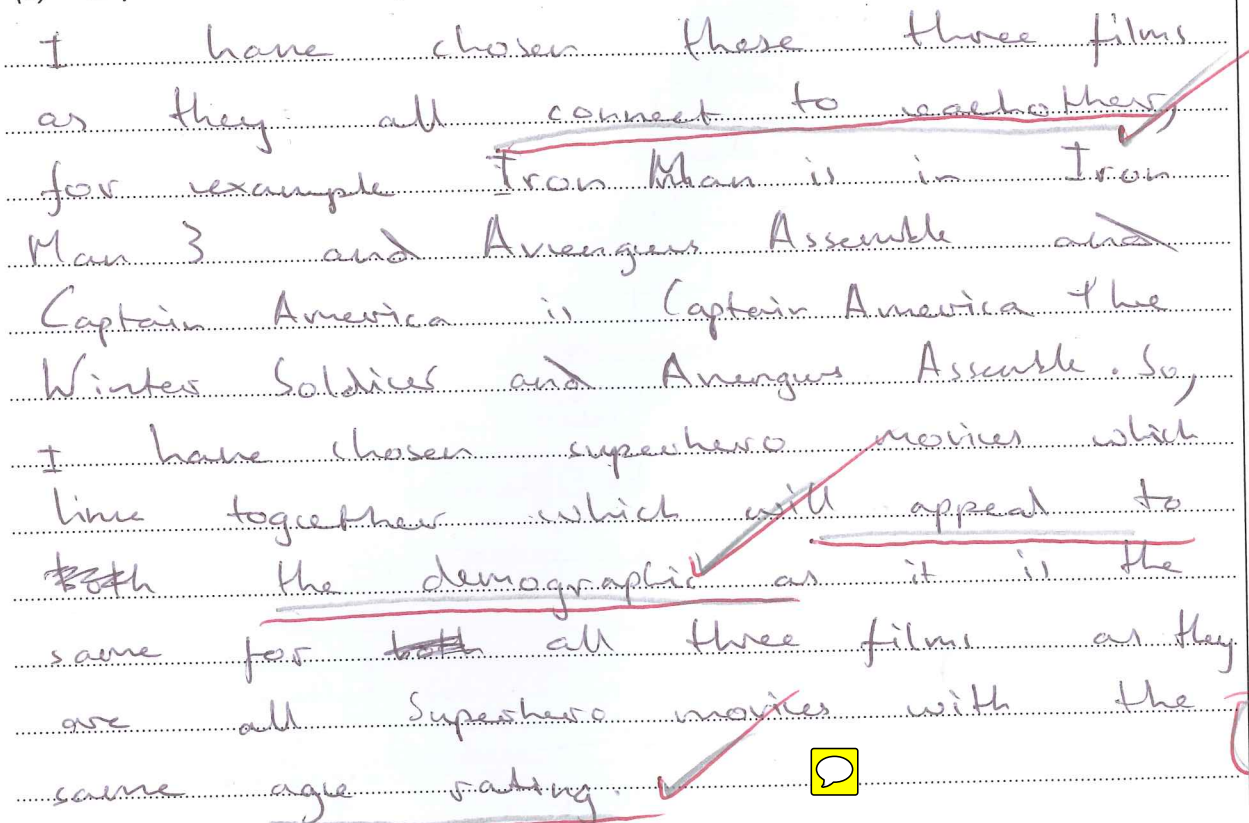 I have chosen these three films
as they all connect to eachother,
for example Iron Man is in Iron
Man 3 and Avengers Assemble and
Captain America is Captain America the
Winter Soldier and Avengers Assemble. So,
I have chosen superhero movies which
line together which will appeal to
the demographic as it is the
same for all three films as they
are all Superhero movies with the
same age rating.